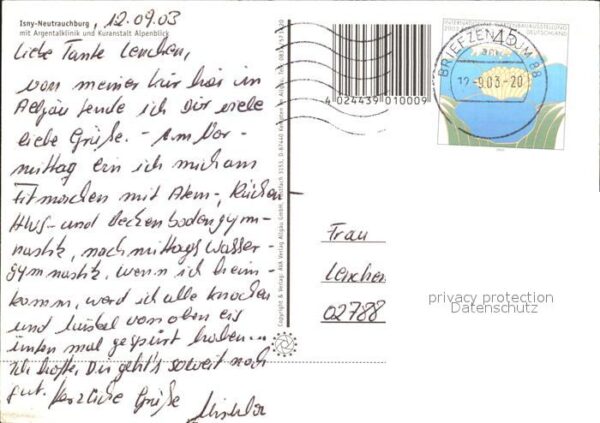 Isny-Neutrauchburg, 12.09.03
mit Argentalklinik und Kuranstalt Alpenblick
Liebe Tante Lenchen,
von meiner Kur hier in
Allgäu sende ich Dir viele
liebe Grüße. - Am Vor-
mittag bin ich mich am
Fitmachen mit Atem-, Rücken
HWS- und Beckenbodengym-
nastik, nachmittags Wasser-
gymnastik. Wenn ich heim-
komm, werd ich alle Knochen
und Muskel von oben bis
unten mal gespürt haben...
Ich hoffe, Dir geht's soweit noch
gut. Herzliche Grüße
Copyright & Verlag: AVA Verlag Allgäu GmbH, Postfach 3153, D-87440 Kempten
4 024439 010009
INTERNATIONALE GARTENBAUAUSSTELLUNG
2003 DEUTSCHLAND
45
BRIEFZENTRUM 88
12.-9.03.-20
Frau
Lenchen
02788
privacy protection
Datenschutz